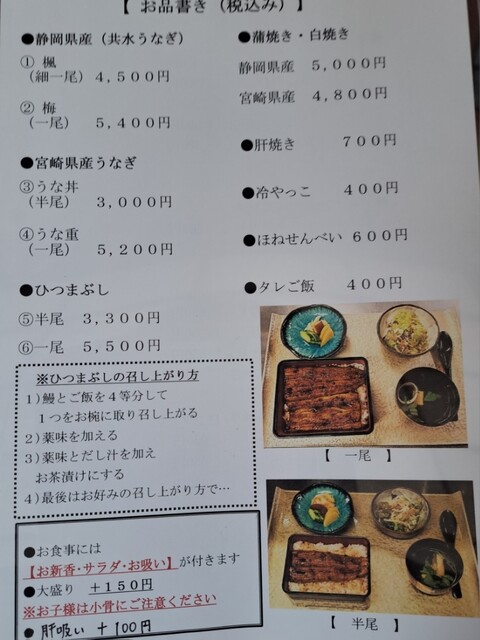 【 お品書き（税込み）】
●静岡県産（共水うなぎ）
① 楓
（細一尾） ４,５００円
② 梅
（一尾） ５,４００円
●宮崎県産うなぎ
③うな丼
（半尾） ３,０００円
④うな重
（一尾） ５,２００円
●ひつまぶし
⑤半尾 ３,３００円
⑥一尾 ５,５００円
※ひつまぶしの召し上がり方
１）鰻とご飯を４等分して
１つをお椀に取り召し上がる
２）薬味を加える
３）薬味とだし汁を加え
お茶漬けにする
４）最後はお好みの召し上がり方で…
●お食事には
【お新香・サラダ・お吸い】が付きます
●大盛り ＋１５０円
※お子様は小骨にご注意ください
● 肝吸い ＋１００円
●蒲焼き・白焼き
静岡県産 ５,０００円
宮崎県産 ４,８００円
●肝焼き ７００円
●冷やっこ ４００円
●ほねせんべい ６００円
●タレご飯 ４００円
【 一尾 】
【 半尾 】